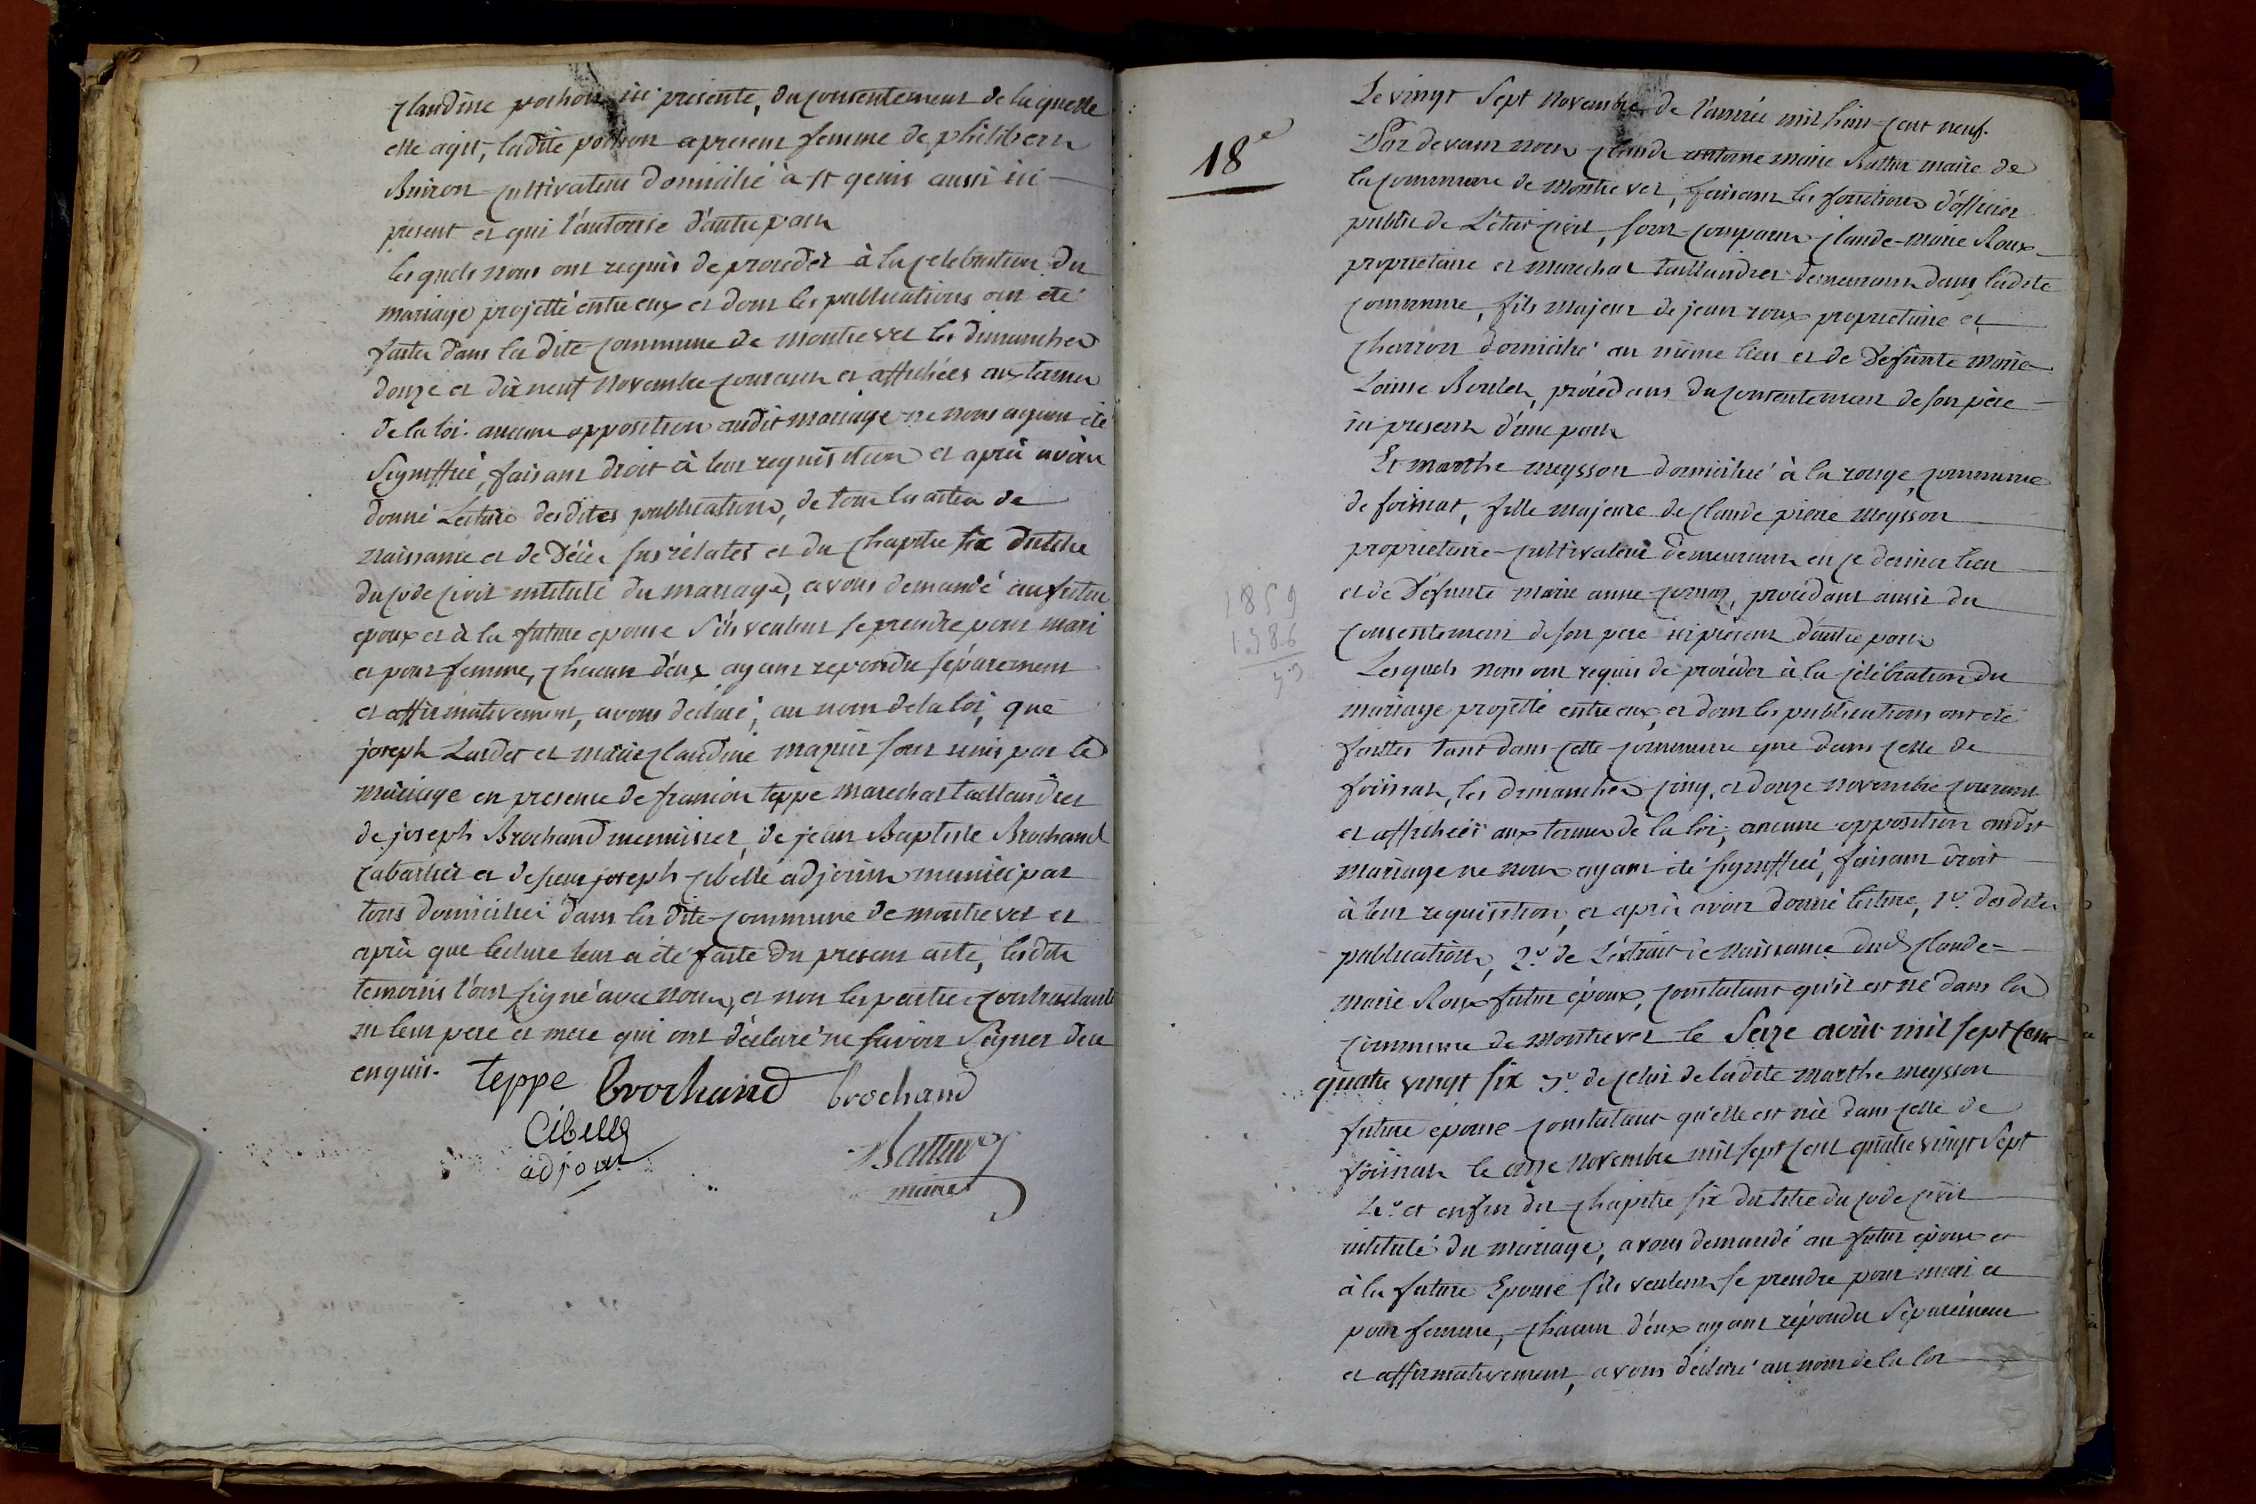 Claudine pochon ici présente, du consentement de laquelle
elle agit, ladite pochon apresent femme de philibert
Buiron cultivateur domicilié a st genis aussi ici
présent et qui l'autorise d'autre part
lesquels nous ont requis de proceder à la celebration du
mariage projetté entre eux et dont les publications ont été
faites dans la dite commune de Montrevel les dimanches
douze et dix neuf Novembre courant et affichées aux termes
de la loi. aucune opposition audit mariage ne nous ayant été
Signiffiée, faisant droit à leur requisition et après avoir
donné Lecture desdites publications, de tous les actes de
naissance et de décès susrélatés et du chapitre six du titre
du code civil intitulé du mariage, avons demandé au futur
epoux et à la future epouse s'ils veulent se prendre pour mari
et pour femme, chacun d'eux ayant repondu séparement
et affirmativement, avons déclaré, au nom de la loi, que
joseph Lardet et marie claudine mazuir sont unis par le
mariage en presence de françois teppe marechal taillandier
de joseph Brochand menuisier, de jean Baptiste Brochand
Cabartier et de sieur joseph Cibelle adjoint municipar
tous domiciliés dans la dite commune de montrevel et
après que lecture leur a été faite du present acte, lesdits
temoins l'ont signé avec nous, et non les parties contractantes
ni leur pere et mere qui ont déclaré ne savoir Signer de ce
enquis.
teppe Brochand brochand
Cibelle
adjoint
maire
18e
Le vingt Sept Novembre de l'année mil huit cent neuf.
Par devant nous claude antoine marie maire de
la commune de Montrevel, faisant les fonctions d'officier
public de L'état civil, sont comparus claude-marie Roux
proprietaire et marechal taillandier demeurant dans ladite
commune, fils majeur de jean roux proprietaire et
charron domicilié au même lieu et de Défunte marie
Loüise, procédant du consentement de son père
ici present d'une part
Et marthe meysson domiciliée à la rouge, commune
de foissiat, fille majeure de claude pierre Meysson
proprietaire cultivateur demeurant en ce dernier lieu
et de Défunte marie anne, procédant aussi du
consentement de son pere ici présent d'autre part
Lesquels nous ont requis de procéder à la célébration du
mariage projetté entre eux, et dont les publications ont été
faittes tant dans cette commune que dans celle de
foissiat, les dimanches cinq, et douze novembre courant
et affichées aux termes de la loi; aucune opposition audit
mariage ne nous ayant été signiffiée, faisant droit
à leur requisition, et après avoir donné lecture, 1o. desdites
publications, 2o. de L'extrait de Naissance dud. Claude-
marie Roux futur époux, constatant qu'il est né dans la
commune de Montrevel le Seize août mil sept cent
quatre vingt six 3o. de celui de ladite marthe meysson
future epouse constatant qu'elle est née dans celle de
foissiat le onze novembre mil sept cent quatre vingt Sept
4o. et enfin du chapitre six du titre du code civil
intitulé du mariage, avons demandé au futur époux et
à la future Epouse s'ils veulent se prendre pour mari et
pour femme, chacun d'eux ayant répondu Séparément
et affirmativement, avons déclaré au nom de la loi